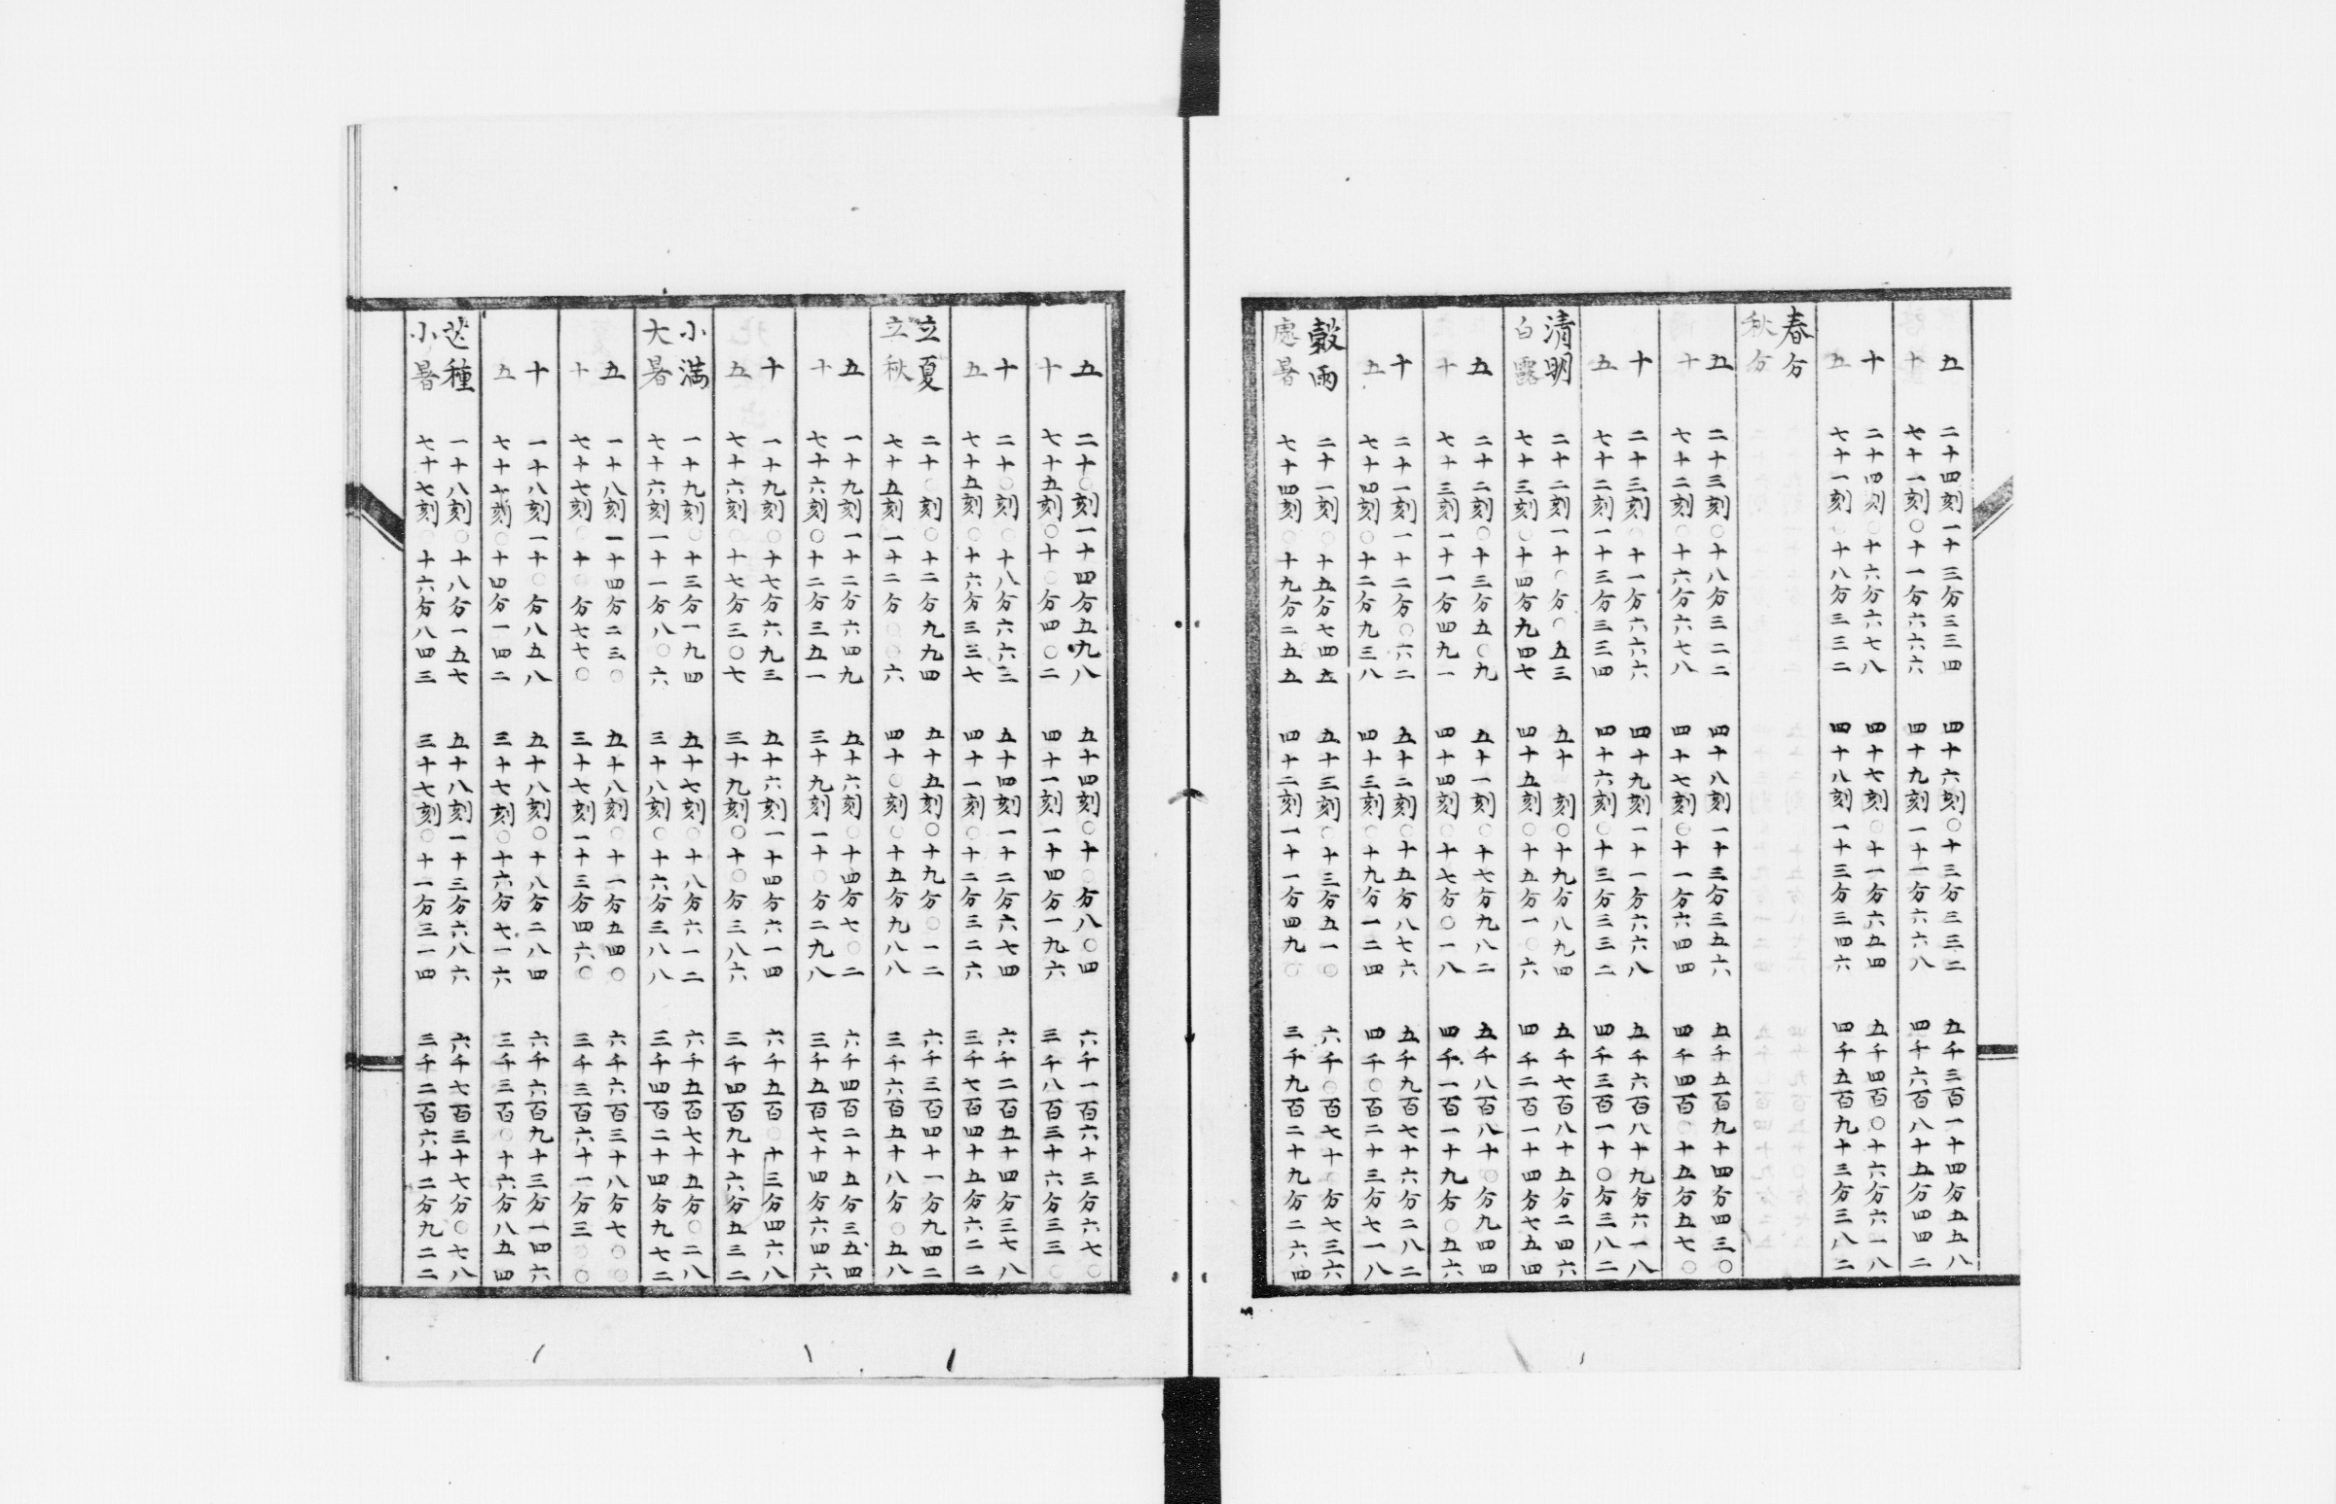 五 二十四刻一十三分三三四 四十六刻〇十三分三三二 五千三百一十四分五五八
十 七十一刻〇十一分六六六 四十九刻一十一分六六八 四千六百八十五分四四二
十 二十四刻〇十六分六七八 四十七刻〇十一分六五四 五千四百〇十六分六一八
五 七十一刻〇十八分三三二 四十八刻一十三分三四六 四千五百九十三分三八二
春分
秋分
五 二十三刻〇十八分三二二 四十八刻一十三分三五六 五千五百九十四分四三〇
十 七十二刻〇十六分六七八 四十七刻〇十一分六四四 四千四百〇十五分五七〇
十 二十三刻〇十一分六六六 四十九刻一十一分六六八 五千六百八十九分六一八
五 七十二刻一十三分三三四 四十六刻〇十三分三三二 四千三百一十〇分三八二
清明 二十二刻一十〇分〇五三 五十刻〇十九分八九四 五千七百八十五分二四六
白露 七十三刻〇十四分九四七 四十五刻〇十五分一〇六 四千二百一十四分七五四
五 二十二刻〇十三分五〇九 五十一刻〇十七分九八二 五千八百八十〇分九四四
十 七十三刻一十一分四九一 四十四刻〇十七分〇一八 四千一百一十九分〇五六
十 二十一刻一十二分〇六二 五十二刻〇十五分八七六 五千九百七十六分二八二
五 七十四刻〇十二分九三八 四十三刻〇十九分一二四 四千〇百二十三分七一八
穀雨 二十一刻〇十五分七四五 五十三刻〇十三分五一〇 六千〇百七十〇分七三六
處暑 七十四刻〇十九分二五五 四十二刻一十一分四九〇 三千九百二十九分二六四
五 二十〇刻一十四分五九八 五十四刻〇十〇分八〇四 六千一百六十三分六七〇
十 七十五刻〇十〇分四〇二 四十一刻一十四分一九六 三千八百三十六分三三〇
十 二十〇刻〇十八分六六三 五十四刻一十二分六七四 六千二百五十四分三七八
五 七十五刻〇十六分三三七 四十一刻〇十二分三二六 三千七百四十五分六二二
立夏 二十〇刻〇十二分九九四 五十五刻〇十九分〇一二 六千三百四十一分九四二
立秋 七十五刻一十二分〇〇六 四十〇刻〇十五分九八八 三千六百五十八分〇五八
五 一十九刻一十二分六四九 五十六刻〇十四分七〇二 六千四百二十五分三五四
十 七十六刻〇十二分三五一 三十九刻一十〇分二九八 三千五百七十四分六四六
十 一十九刻〇十七分六九三 五十六刻一十四分六一四 六千五百〇十三分四六八
五 七十六刻〇十七分三〇七 三十九刻〇十〇分三八六 三千四百九十六分五三二
小滿 一十九刻〇十三分一九四 五十七刻〇十八分六一二 六千五百七十五分〇二八
大暑 七十六刻一十一分八〇六 三十八刻〇十六分三八八 三千四百二十四分九七二
五 一十八刻一十四分二三〇 五十八刻〇十一分五四〇 六千六百三十八分七〇〇
十 七十七刻〇十〇分七七〇 三十七刻一十三分四六〇 三千三百六十一分三〇〇
十 一十八刻一十〇分八五八 五十八刻〇十八分二八四 六千六百九十三分一四六
五 七十七刻〇十四分一四二 三十七刻〇十六分七一六 三千三百〇十六分八五四
芒種 一十八刻〇十八分一五七 五十八刻一十三分六八六 六千七百三十七分〇七八
小暑 七十七刻〇十六分八四三 三十七刻〇十一分三一四 三千二百六十二分九二二